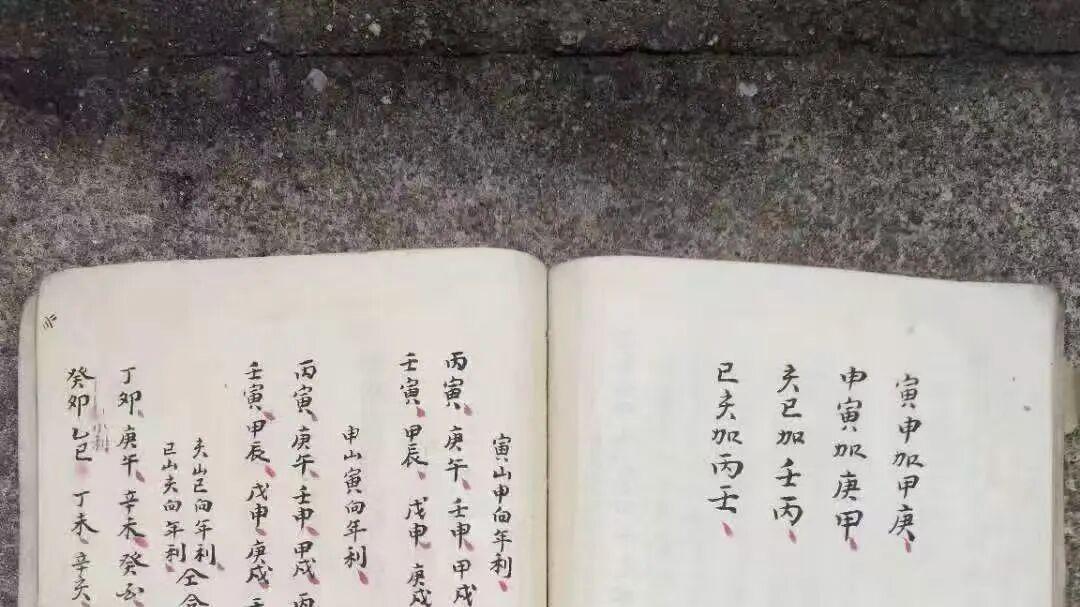 寅申加甲庚、
申寅加庚甲、
亥巳加壬丙、
巳亥加丙壬、
寅山申向年利、
丙寅、庚午、壬申、甲戌
壬寅、甲辰、戊申、庚戌
申山寅向年利、
丙寅、庚午、壬申、甲戌、
壬寅、甲辰、戊申、庚戌、壬
亥山巳向年利、
巳山亥向年利、仝
丁卯、庚午、辛未、癸
癸卯、乙巳、丁未、辛亥、
小利